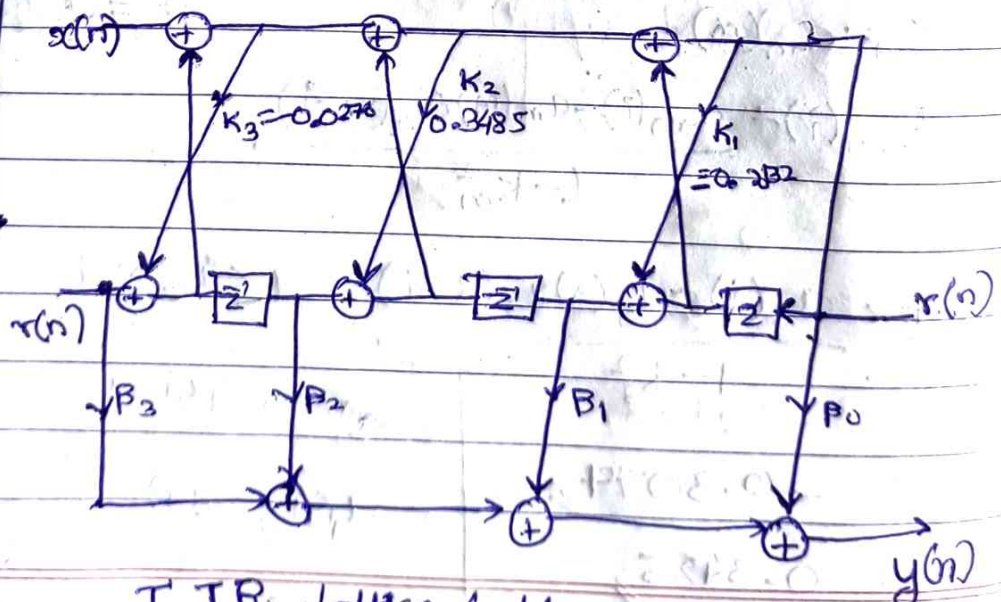 x(n) + + +
K3=-0.0276
K2
0.3485
K1
r(n) + z⁻¹ + z⁻¹ + z⁻¹ r(n)
β3 β2 β1 β0
+ + +
y(n)